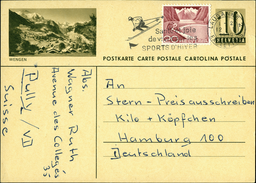 WENGEN
SPORTS D'HIVER
10
HELVETIA
POSTKARTE CARTE POSTALE CARTOLINA POSTALE
Abs.
Wagner Ruth
Avenue des Collèges
35
Pully / VD
Suisse
An
Stern - Preisausschreiben
Kilo + Köpfchen
Hamburg 100
Deutschland